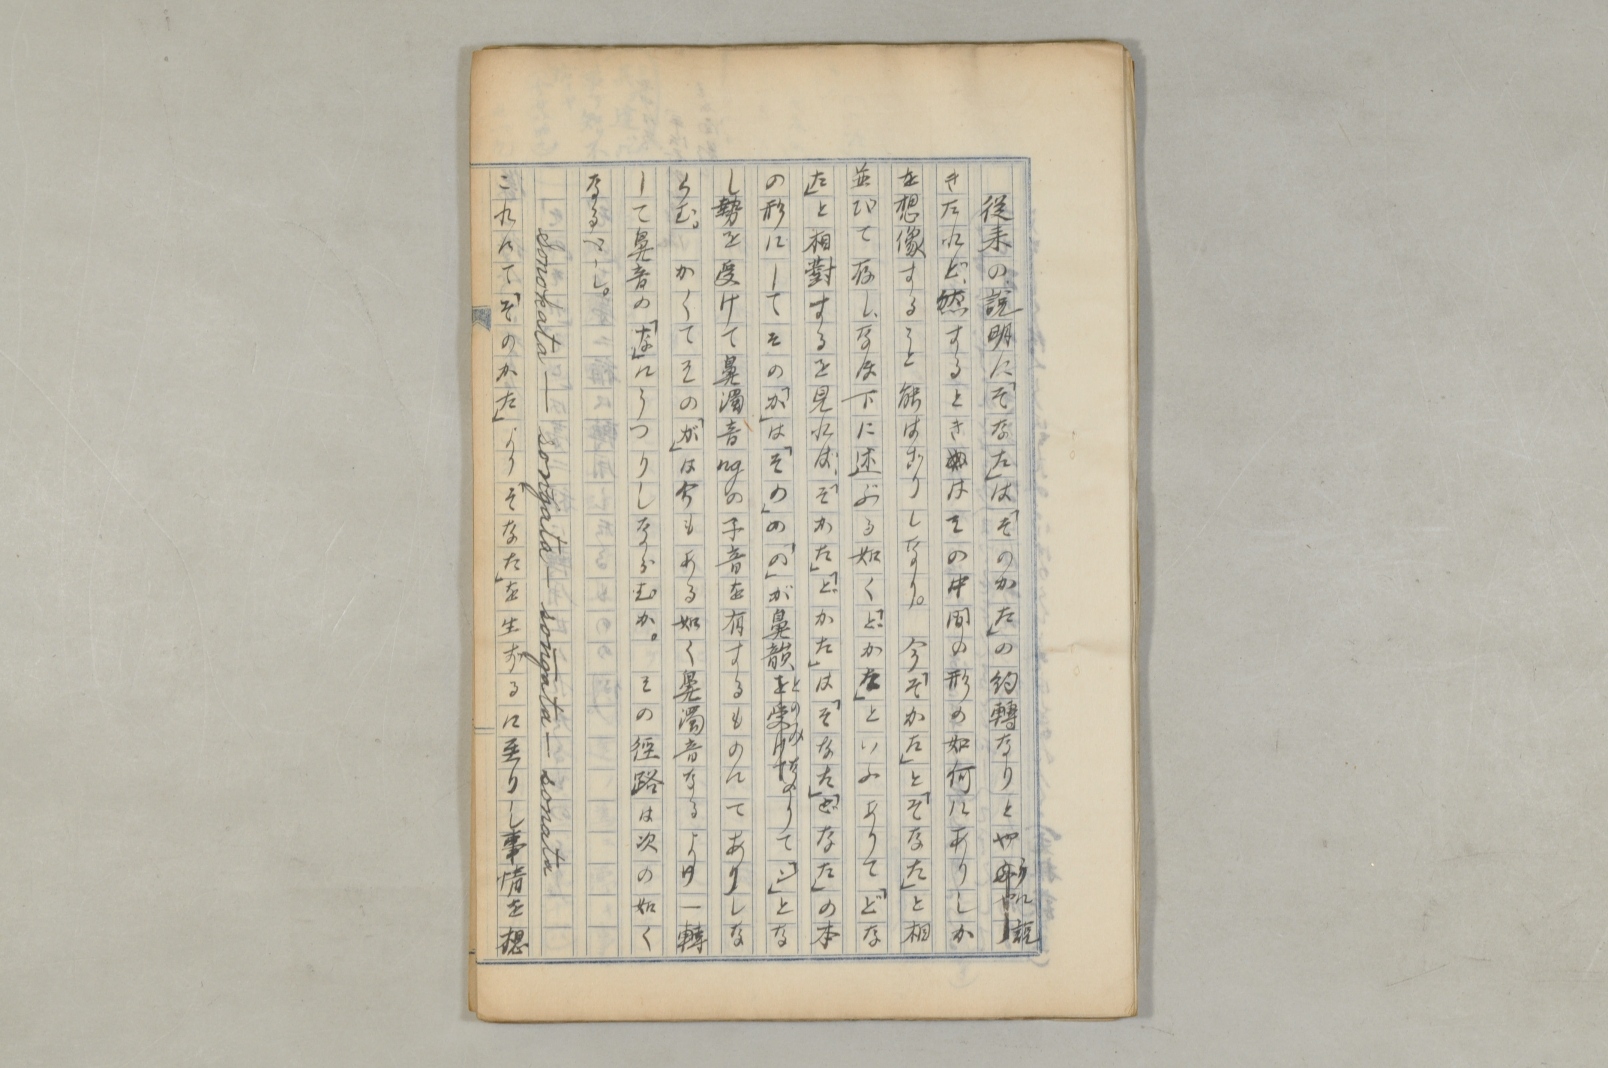 従来の説明に「そなた」は「そのかた」の約轉なりとやうに説
きたれど、然するときはその中間の形の如何にありしか
を想像すること能はざりしなり。今「そかた」と「そなた」と相
並びて存し、なほ下に述ぶる如く「どかた」といふありて「どな
た」と相對するを見れば、「そかた」「どかた」は「そなた」「どなた」の本
の形にしてその「か」は「その」の「の」が鼻韻とのみなりて「ン」とな
し勢を受けて鼻濁音ngの子音を有するものにてありしな
らむ。かくてその「が」は今もある如く鼻濁音なるより一轉
して鼻音の「な」にうつりしならむか。その徑路は次の如く
なるべし。
sonokata — songata — songata — sonata
これにて「そのかた」より「そなた」を生ずるに至りし事情を想